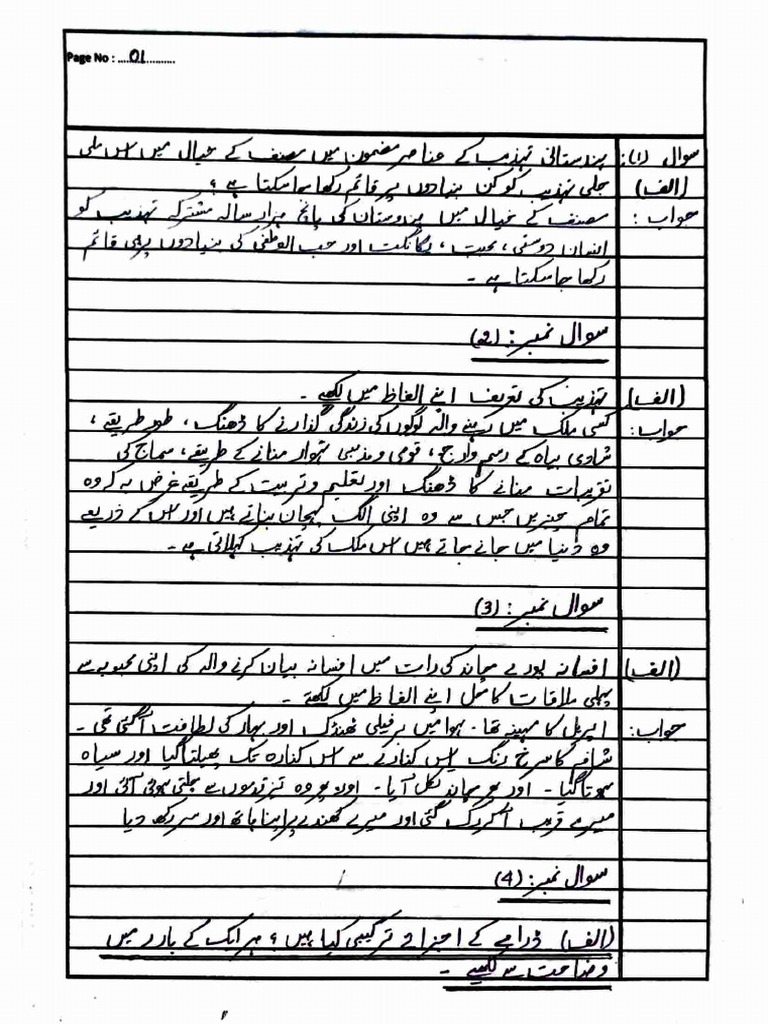 Page No : ....01............
سوال (1): ہندوستانی تہذیب کے عناصر مضمون میں مصنف کے خیال میں اس ملی
(الف) جلی تہذیب کو کن بنیادوں پر قائم رکھا جا سکتا ہے ؟
جواب : مصنف کے خیال میں ہندوستان کی پانچ ہزار سالہ مشترکہ تہذیب کو
انسان دوستی ، محبت ، یگانگت اور حب الوطنی کی بنیادوں پر ہی قائم
رکھا جا سکتا ہے ۔
سوال نمبر : (2)
(الف) تہذیب کی تعریف اپنے الفاظ میں لکھیے ۔
جواب : کسی ملک میں رہنے والے لوگوں کی زندگی گذارنے کا ڈھنگ ، طور طریقے ،
شادی بیاہ کے رسم وارج ، قومی و مذہبی تہوار منانے کے طریقے ، سماج کی
تقریبات منانے کا ڈھنگ اور تعلیم و تربیت کے طریقے غرض یہ کہ وہ
تمام چیزیں جس سے وہ اپنی الگ پہچان بناتے ہیں اور اس کے ذریعے
وہ دنیا میں جانے جاتے ہیں اس ملک کی تہذیب کہلاتی ہے ۔
سوال نمبر : (3)
(الف) افسانہ پورے چاند کی رات میں افسانہ بیان کرنے والے کی اپنی محبوبہ سے
پہلی ملاقات کا حال اپنے الفاظ میں لکھئے ۔
جواب : اپریل کا مہینہ تھا ۔ ہوا میں برفیلی ٹھنڈک اور بہار کی لطافت آگئی تھی ۔
شام کا سرخ رنگ اس کنارے سے اس کنارہ تک پھیلتا گیا اور سیاہ
ہوتا گیا ۔ اور پھر چاند نکل آیا ۔ اور پھر وہ تیز قدموں سے چلتی ہوئی آئی اور
میرے قریب آکر رک گئی اور میرے کھندے پر اپنا ہاتھ اور سر رکھ دیا
سوال نمبر : (4)
(الف) ڈرامے کے اجزائے ترکیبی کیا ہیں ؟ ہر ایک کے بارے میں
وضاحت سے لکھیے ۔